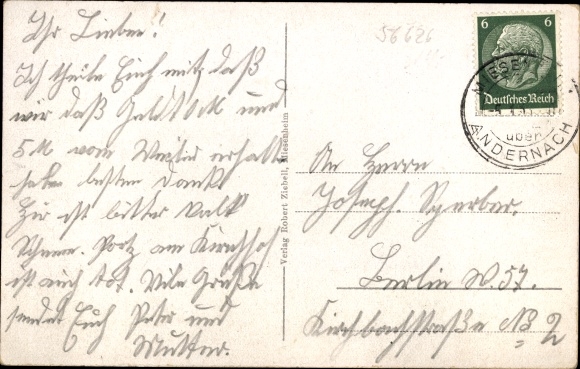 Ihr Lieben!
Ich theile Euch mit, daß
wir daß Geld 10 M und
5 M vom erhalt
haben besten Dank
ist bitter kalt
am Kirchhof
ist auch tot. Viele Grüße
sendet Euch Peter und
Mutter.
Verlag Robert Ziebell, Miesenheim
56626
6 6
Deutsches Reich
MIESENHEIM
über
ANDERNACH
An Herrn
Joseph. Sperber.
Berlin W. 57.
Kirchbachstraße No 2